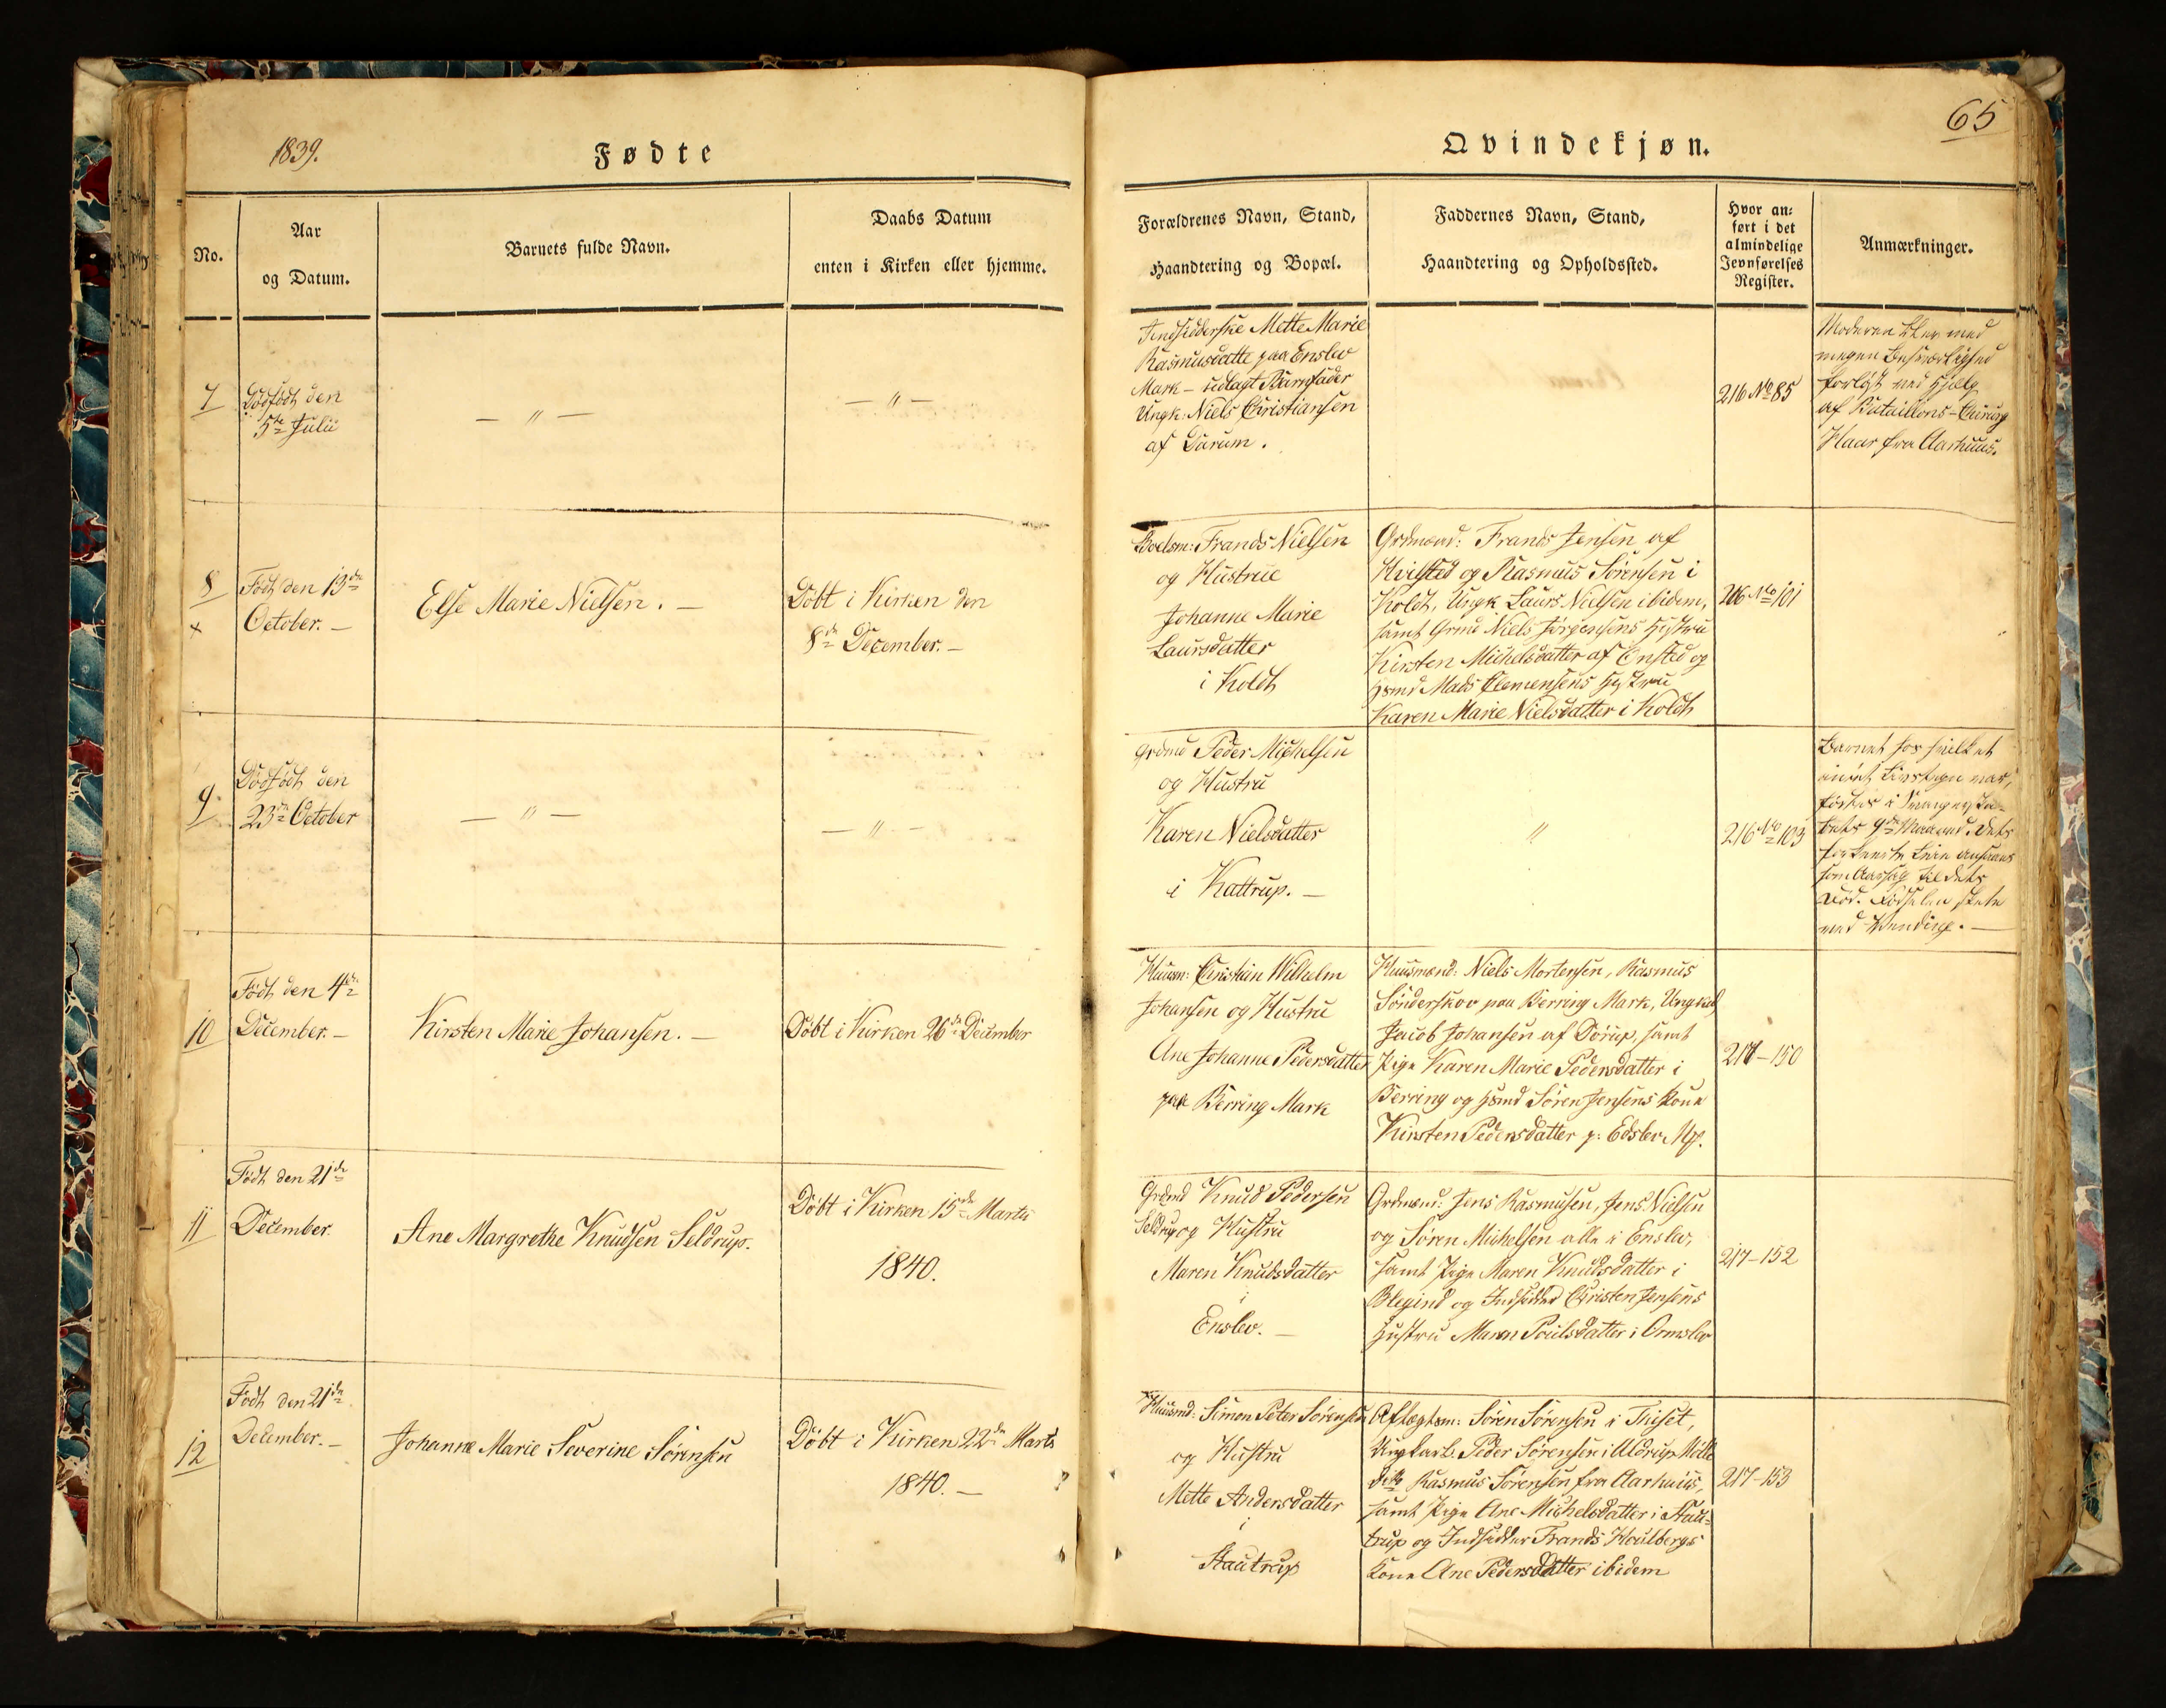 1839.
Fødte
Qvindekjøn.
65
No.
Aar
og Datum.
Barnets fulde Navn.
Daabs Datum
enten i Kirken eller hjemme.
Forældrenes Navn, Stand,
Haandtering og Bopæl.
Faddernes Navn, Stand,
Haandtering og Opholdssted.
Hvor an-
ført i det
almindelige
Jevnførelses
Register.
Anmærkninger.
7
Dødfødt den
5te Julii
— " —
— " —
Indsidderske Mette Marie
Rasmusdatte paa Enslev
Mark – udlagt Barnfader
Ungk: Niels Christiansen
af Darum.
216 No 85
Moderen blev med
megen Besværlighed
forløst ved Hjelp
af Bataillons-Chirurg
Haar fra Aarhuus.
8
x
Födt den 13de
October. —
Else Marie Nielsen. —
Döbt i Kirken den
8de December. —
Boelsm: Frands Nielsen
og Hustrue
Johanne Marie
Laursdatter
i Koldt
Grdmænd: Frands Jensen af
Hvilsted og Rasmus Sörensen i
Koldt, Ungk Laurs Nielsen ibidem,
samt Grmd Niels Jörgensens Hustru
Kirsten Michelsdatter af Ensted og
Hsmd Mads Clemensens Hustru
Karen Marie Nielsdatter i Koldt
216 No 101
9
Dödfödt den
23de October
— " —
— " —
Grdmd Peder Michelsen
og Hustru
Karen Nielsdatter
i Kattrup. —
"
216 No 103
Barnet hos hvilket
intet Livstegn var,
fødtes i Svangerska-
bets 9de Maaned. Dets
som Aarsag til dets
Död. Födselen skete
ved Vending. —
10
Födt den 4de
December. —
Kirsten Marie Johansen. —
Döbt i Kirken 26de December
Huusm: Christian Wilhelm
Johansen og Hustru
Ane Johanne Pedersdatter
paa Berring Mark
Huusmænd: Niels Mortensen, Rasmus
Sönderskov paa Berring Mark, Ungkarl
Jacob Johansen af Dörup, samt
Pige Karen Marie Pedersdatter i
Berring og Hsmd Sören Jensens Kone
Kirsten Pedersdatter p: Edslev Mk.
217–150
11
Födt den 21de
December.
Ane Margrethe Knudsen Seldrup.
Döbt i Kirken 15de Marts
1840.
Grdmd Knud Pedersen
Seldrup og Hustru
Maren Knudsdatter
i
Enslev. —
Grdmænd: Jens Rasmusen, Jens Nielsen
og Sören Michelsen alle i Enslev,
samt Pige Maren Knudsdatter i
Blegind og Indsidder Christen Jensens
Hustru Maren Poulsdatter i Ormslev
217–152
12
Födt den 21de
December. —
Johanne Marie Severine Sörensen
Döbt i Kirken 22de Marts
1840. —
Huusmd: Simon Peter Sörensen
og Hustru
Mette Andersdatter
i
Stautrup
Aftægtsm: Sören Sörensen i Thiset,
Ungkarle Peder Sörensen i Aldrup Mölle
dito Rasmus Sörensen fra Aarhuus,
samt Pige Ane Michelsdatter i Stau-
trup og Indsidder Frands Houlbergs
Kone Ane Pedersdatter ibidem
217–153